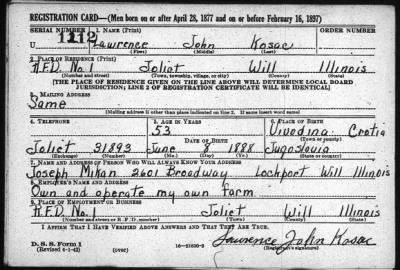 REGISTRATION CARD—(Men born on or after April 28, 1877 and on or before February 16, 1897)
SERIAL NUMBER 1. NAME (Print)
U 1212 Lawrence John Kosac
(First) (Middle) (Last)
2. PLACE OF RESIDENCE (Print)
R.F.D. No. 1 Joliet Will Illinois
(Number and street) (Town, township, village, or city) (County) (State)
[THE PLACE OF RESIDENCE GIVEN ON THE LINE ABOVE WILL DETERMINE LOCAL BOARD
JURISDICTION; LINE 2 OF REGISTRATION CERTIFICATE WILL BE IDENTICAL]
3. MAILING ADDRESS
Same
[Mailing address if other than place indicated on line 2. If same insert word same]
4. TELEPHONE 5. AGE IN YEARS 6. PLACE OF BIRTH
53 Vivodina Crotia
DATE OF BIRTH (Town or county)
Joliet 31893 June 8 1888 Jugoslavia
(Exchange) (Number) (Mo.) (Day) (Yr.) (State or country)
7. NAME AND ADDRESS OF PERSON WHO WILL ALWAYS KNOW YOUR ADDRESS
Joseph Mikan 2601 Broadway Lockport Will Illinois
8. EMPLOYER'S NAME AND ADDRESS
Own and operate my own farm
9. PLACE OF EMPLOYMENT OR BUSINESS
R.F.D. No. 1 Joliet Will Illinois
(Number and street or R. F. D. number) (Town) (County) (State)
I AFFIRM THAT I HAVE VERIFIED ABOVE ANSWERS AND THAT THEY ARE TRUE.
D. S. S. Form 1
(Revised 4-1-42) (over) Lawrence John Kosac
(Registrant's signature)